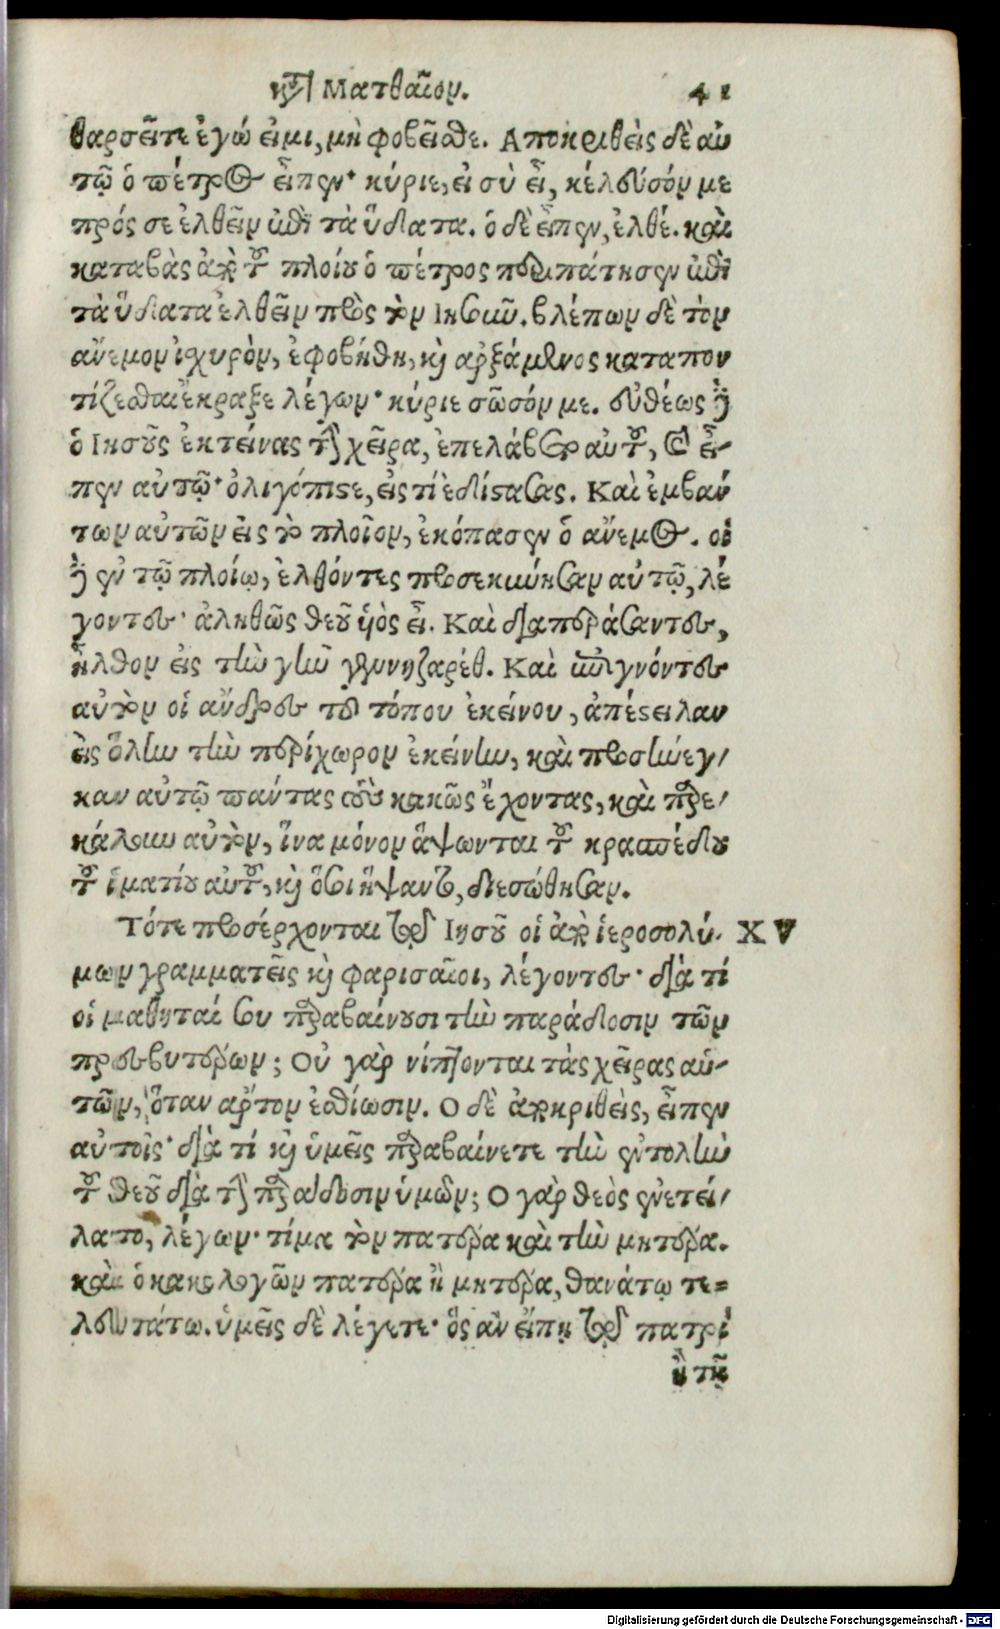 κτ Ματθαῖον. 41
θαρσεῖτε ἐγώ εἰμι, μὴ φοβεῖσθε. Αποκριθεὶς δὲ αὐ
τῷ ὁ πέτρος εἶπεν· κύριε, εἰ σὺ εἶ, κέλευσόν με
πρός σε ἐλθεῖν ἐπὶ τὰ ὕδατα. ὁ δὲ εἶπεν, ἐλθέ. καὶ
καταβὰς ἀπὸ τοῦ πλοίου ὁ πέτρος περιπάτησεν ἐπὶ
τὰ ὕδατα ἐλθεῖν πρὸς τὸν Ιησοῦν. βλέπων δὲ τὸν
ἄνεμον ἰσχυρὸν, ἐφοβήθη, καὶ ἀρξάμενος καταπον
τίζεσθαι ἔκραξε λέγων· κύριε σῶσόν με. εὐθέως δὲ
ὁ Ιησοῦς ἐκτείνας τὴν χεῖρα, ἐπελάβετο αὐτοῦ, καὶ εἶ-
πεν αὐτῷ· ὀλιγόπιστε, εἰς τί ἐδίστασας. Καὶ ἐμβάν
των αὐτῶν εἰς τὸ πλοῖον, ἐκόπασεν ὁ ἄνεμος. οἱ
δὲ ἐν τῷ πλοίῳ, ἐλθόντες προσεκύνησαν αὐτῷ, λέ
γοντες· ἀληθῶς θεοῦ ὑιὸς εἶ. Καὶ διαπεράσαντες,
ἦλθον εἰς τὴν γῆν γεννηζαρέθ. Καὶ ἐπιγνόντες
αὐτὸν οἱ ἄνδρες τοῦ τόπου ἐκείνου, ἀπέστειλαν
εἰς ὅλην τὴν περίχωρον ἐκείνην, καὶ προσήνεγ/
καν αὐτῷ πάντας τοὺς κακῶς ἔχοντας, καὶ παρε/
κάλουν αὐτὸν, ἵνα μόνον ἅψωνται τοῦ κρασπέδου
τοῦ ἱματίου αὐτοῦ, καὶ ὅσοι ἥψαντο, διεσώθησαν.
Τότε προσέρχονται τῷ Ιησοῦ οἱ ἀπὸ ἱεροσολύ- XV
μων γραμματεῖς καὶ φαρισαῖοι, λέγοντες· διὰ τί
οἱ μαθηταί σου παραβαίνουσι τὴν παράδοσιν τῶν
πρεσβυτέρων; Οὐ γὰρ νίπτονται τὰς χεῖρας αὑ-
τῶν, ὅταν ἄρτον ἐσθίωσιν. Ο δὲ ἀποκριθεὶς, εἶπεν
αὐτοῖς· διὰ τί καὶ ὑμεῖς παραβαίνετε τὴν ἐντολὴν
τοῦ θεοῦ διὰ τὴν παράδοσιν ὑμῶν; Ο γὰρ θεὸς ἐνετεί/
λατο, λέγων· τίμα τὸν πατέρα καὶ τὴν μητέρα.
καὶ ὁ κακολογῶν πατέρα ἢ μητέρα, θανάτῳ τε=
λευτάτω. ὑμεῖς δὲ λέγετε· ὃς ἂν εἴπῃ τῷ πατρὶ
ἢ τῇ
Digitalisierung gefördert durch die Deutsche Forschungsgemeinschaft - DFG